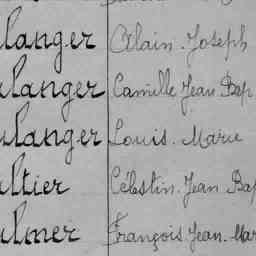 langer Alain. Joseph
langer Camille Jean Bap
ulanger Louis. Marie
ultier Célestin. Jean Bap
ulmer François. Jean. Mar